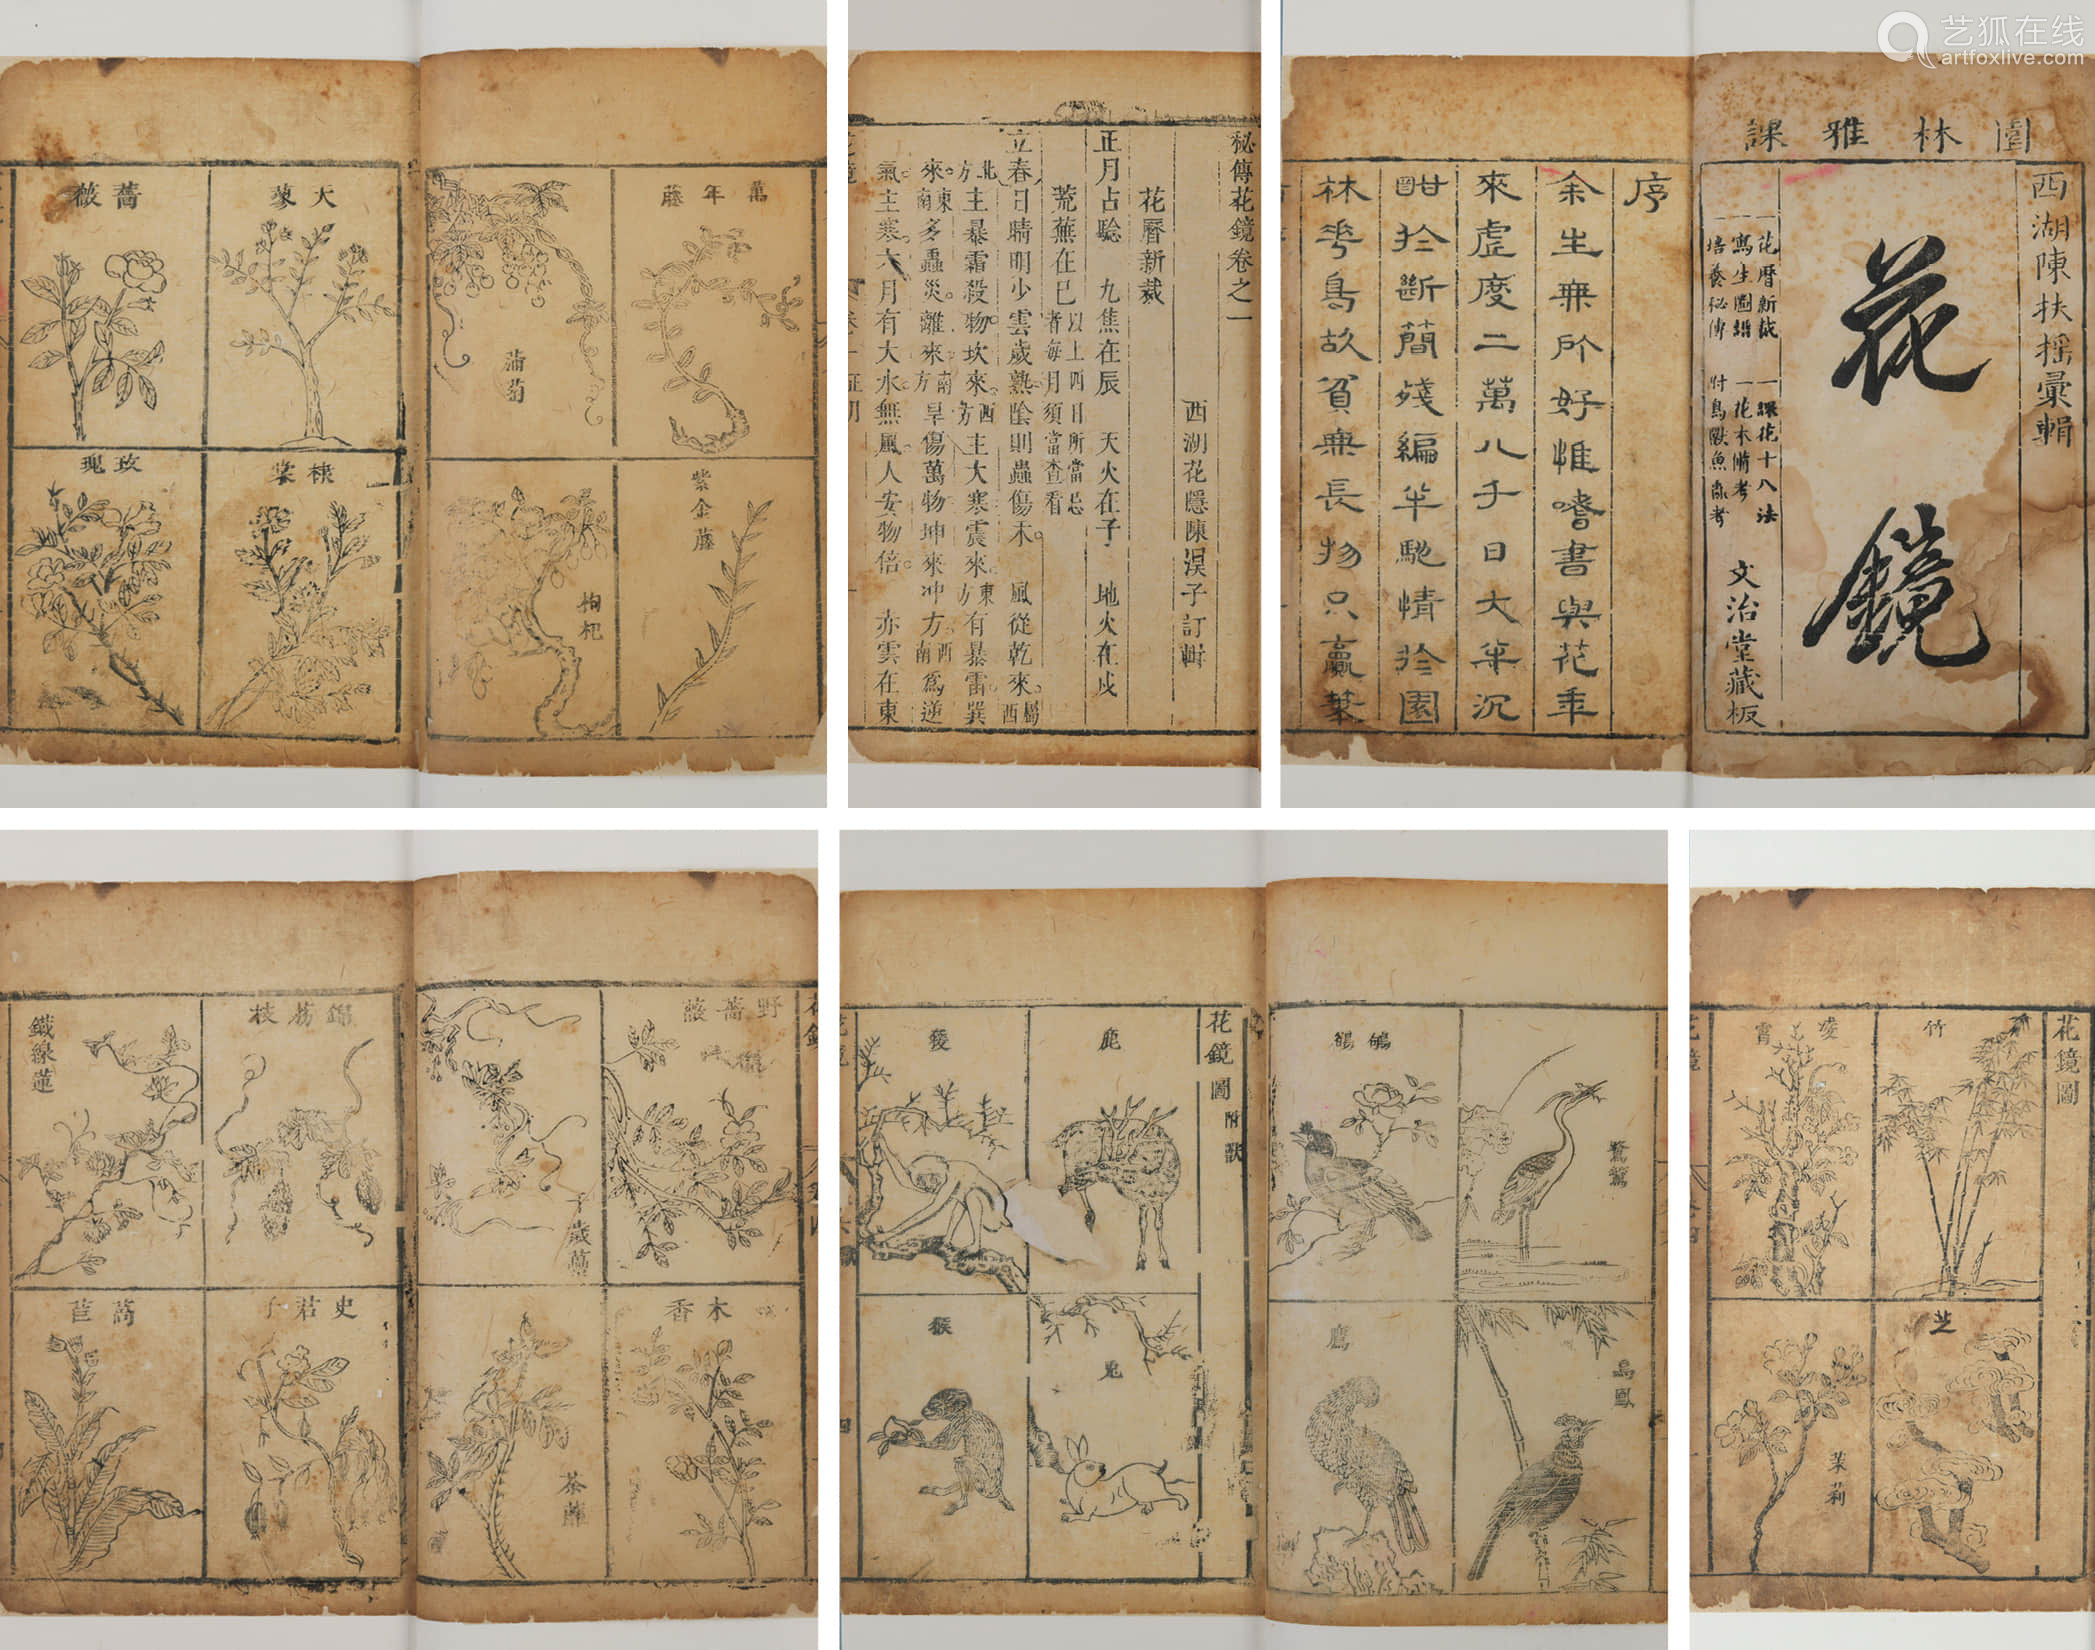 艺狐在线
artfoxlive.com
園林雅課
西湖陳扶搖彙輯
花鏡
一花曆新裁 一課花十八法
一寫生圖譜 一花木備考
一培養秘傳 附鳥獸魚虫考
文治堂藏板
序
余生無所好惟嗜書與花年
來虛度二萬八千日大半沉
酣於斷簡殘編半馳情於園
林花鳥故貧無長物只贏筆
秘傳花鏡卷之一
西湖花隱陳淏子訂輯
花曆新裁
正月占驗 九焦在辰 天火在子 地火在戌
荒蕪在巳以上四日所當忌者每月須當查看
立春日晴明少雲歲熟陰則蟲傷禾 風從乾來屬西
北方主暴霜殺物坎來西方主大寒震來東方有暴雷巽
來東南多蟲災離來南方旱傷萬物坤來冲方西南為逆
氣主寒六月有大水無風人安物倍 赤雲在東
萬年藤
蒲萄
紫金藤
枸杞
天蓼
薔薇
棣棠
玫瑰
花鏡圖
竹
凌霄
芝
茉莉
花鏡圖 附獸
鹿
猨
兔
猴
鷺鷥
鵪鶉
烏鳳
鷹
野薔薇
千歲虆
木香
荼蘼
錦荔枝
鐵線蓮
史君子
萵苣